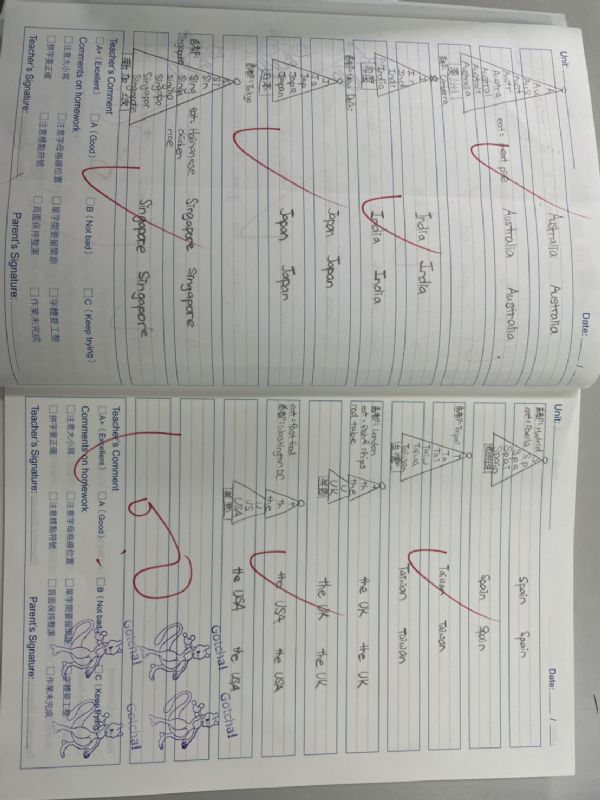 Unit:
Date: /
A
Au
Aus
Aust
Austr
Austra
Austral
Australi
Australia
Australia Australia
eat: meat pie
Australia Australia
澳洲
首都: Canberra
I
In
Ind
Indi
India
India India
印度
India India
首都: New Delhi
J
Ja
Jap
Japa
Japan
Japan Japan
日本
Japan Japan
首都: Tokyo
S
Si
Sin
Sing
Singa
Singap
Singapo
Singapor
Singapore
eat: Hainanese
chicken
rice
Singapore Singapore
首都:
Singapore
Singapore Singapore
新加坡
Teacher's Comment
A+ (Excellent) A (Good) B (Not bad) C (Keep trying)
Comments on homework
注意大小寫 注意字母格線位置 單字間要留間距 字體要工整
拼字要正確 注意標點符號 頁面保持整潔 作業未完成
Teacher's Signature: Parent's Signature:
Unit:
Date: /
首都: Madrid
eat: Paella
S
Sp
Spa
Spai
Spain
Spain Spain
西班牙
Spain Spain
首都: Taipei
T
Ta
Tai
Taiw
Taiwa
Taiwan
Taiwan Taiwan
台灣
Taiwan Taiwan
首都: London
eat: Fish & chips
th
the
U
UK
the UK the UK
英國
the UK the UK
eat: fast food
首都: Washington DC
th
the
U
US
USA
the USA the USA
美國
the USA the USA
Gotcha!
Gotcha!
Gotcha!
Gotcha!
Teacher's Comment
A+ (Excellent) A (Good) B (Not bad) C (Keep trying)
Comments on homework
注意大小寫 注意字母格線位置 單字間要留間距 字體要工整
拼字要正確 注意標點符號 頁面保持整潔 作業未完成
Teacher's Signature: Parent's Signature: